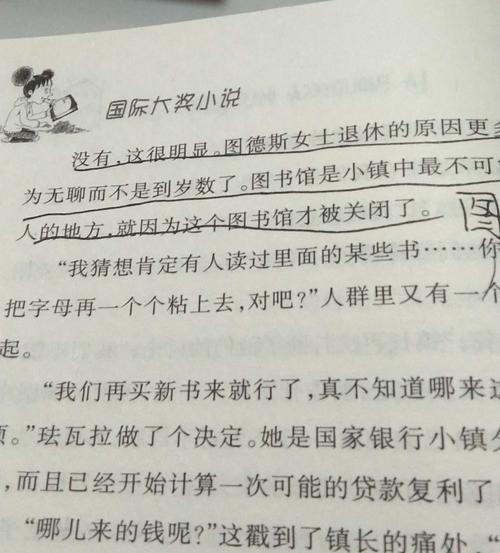 国际大奖小说
没有，这很明显。图德斯女士退休的原因更多
为无聊而不是到岁数了。图书馆是小镇中最不可
人的地方，就因为这个图书馆才被关闭了。
“我猜想肯定有人读过里面的某些书……你
把字母再一个个粘上去，对吧？”人群里又有一个
起。
“我们再买新书来就行了，真不知道哪来这
。”珐瓦拉做了个决定。她是国家银行小镇分
，而且已经开始计算一次可能的贷款复利了
“哪儿来的钱呢？”这戳到了镇长的痛处，“